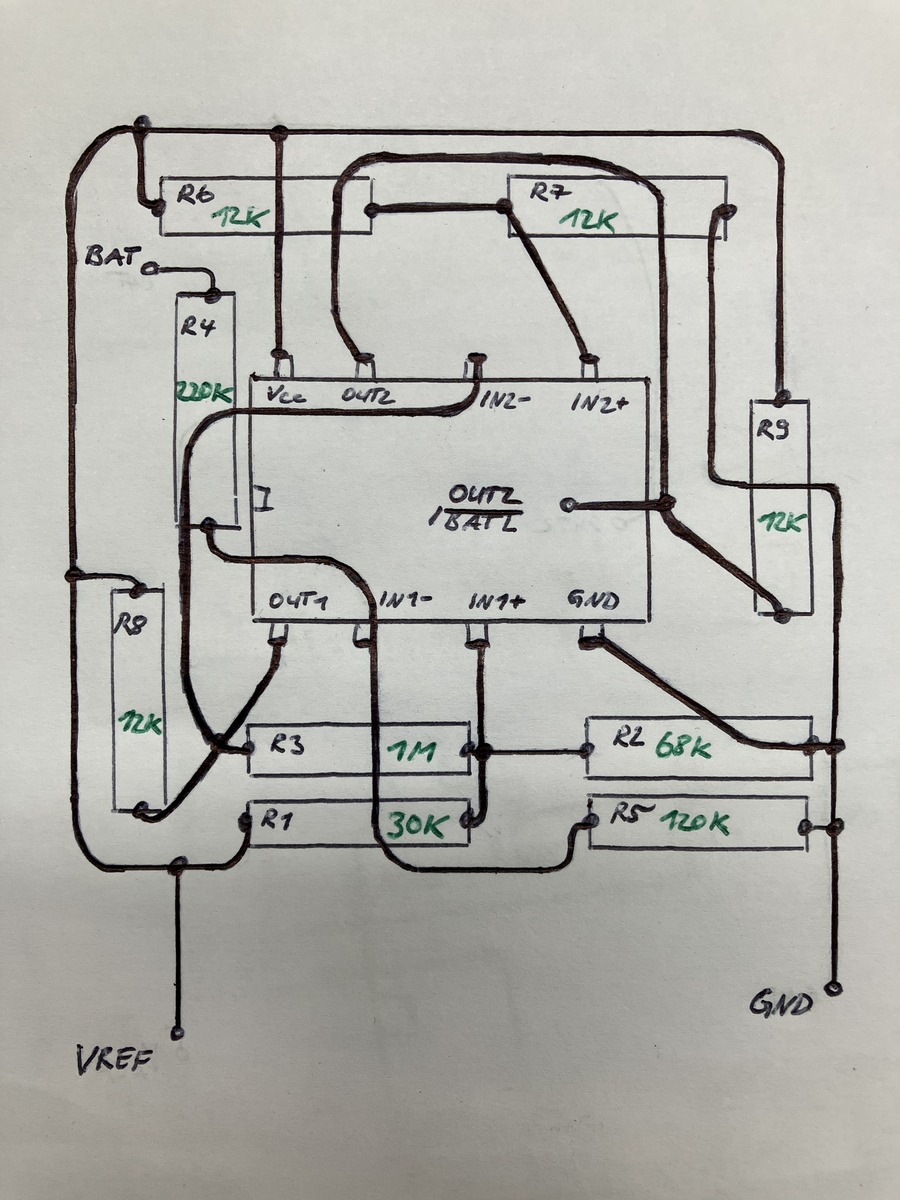 R6
12K
R7
12K
BAT
R4
220K
Vcc
OUT2
IN2-
IN2+
R9
12K
OUT2
/BATL
OUT1
IN1-
IN1+
GND
R8
12K
R3
1M
R2
68K
R1
30K
R5
120K
GND
VREF